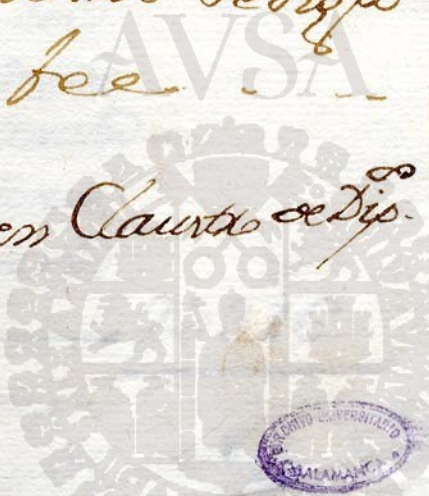 AVSA
fee - -
en Claustro de Dip.os
ARCHIVO UNIVERSITARIO
SALAMANCA